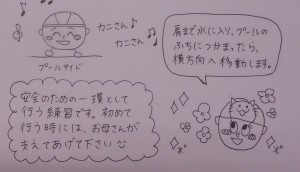 カニさん
カニさん
プールサイド
肩まで水に入り、プールの
ふちにつかまったら、
横方向へ移動します。
安全のための一環として
行う練習です。初めて
行う時には、お母さんが
支えてあげて下さい